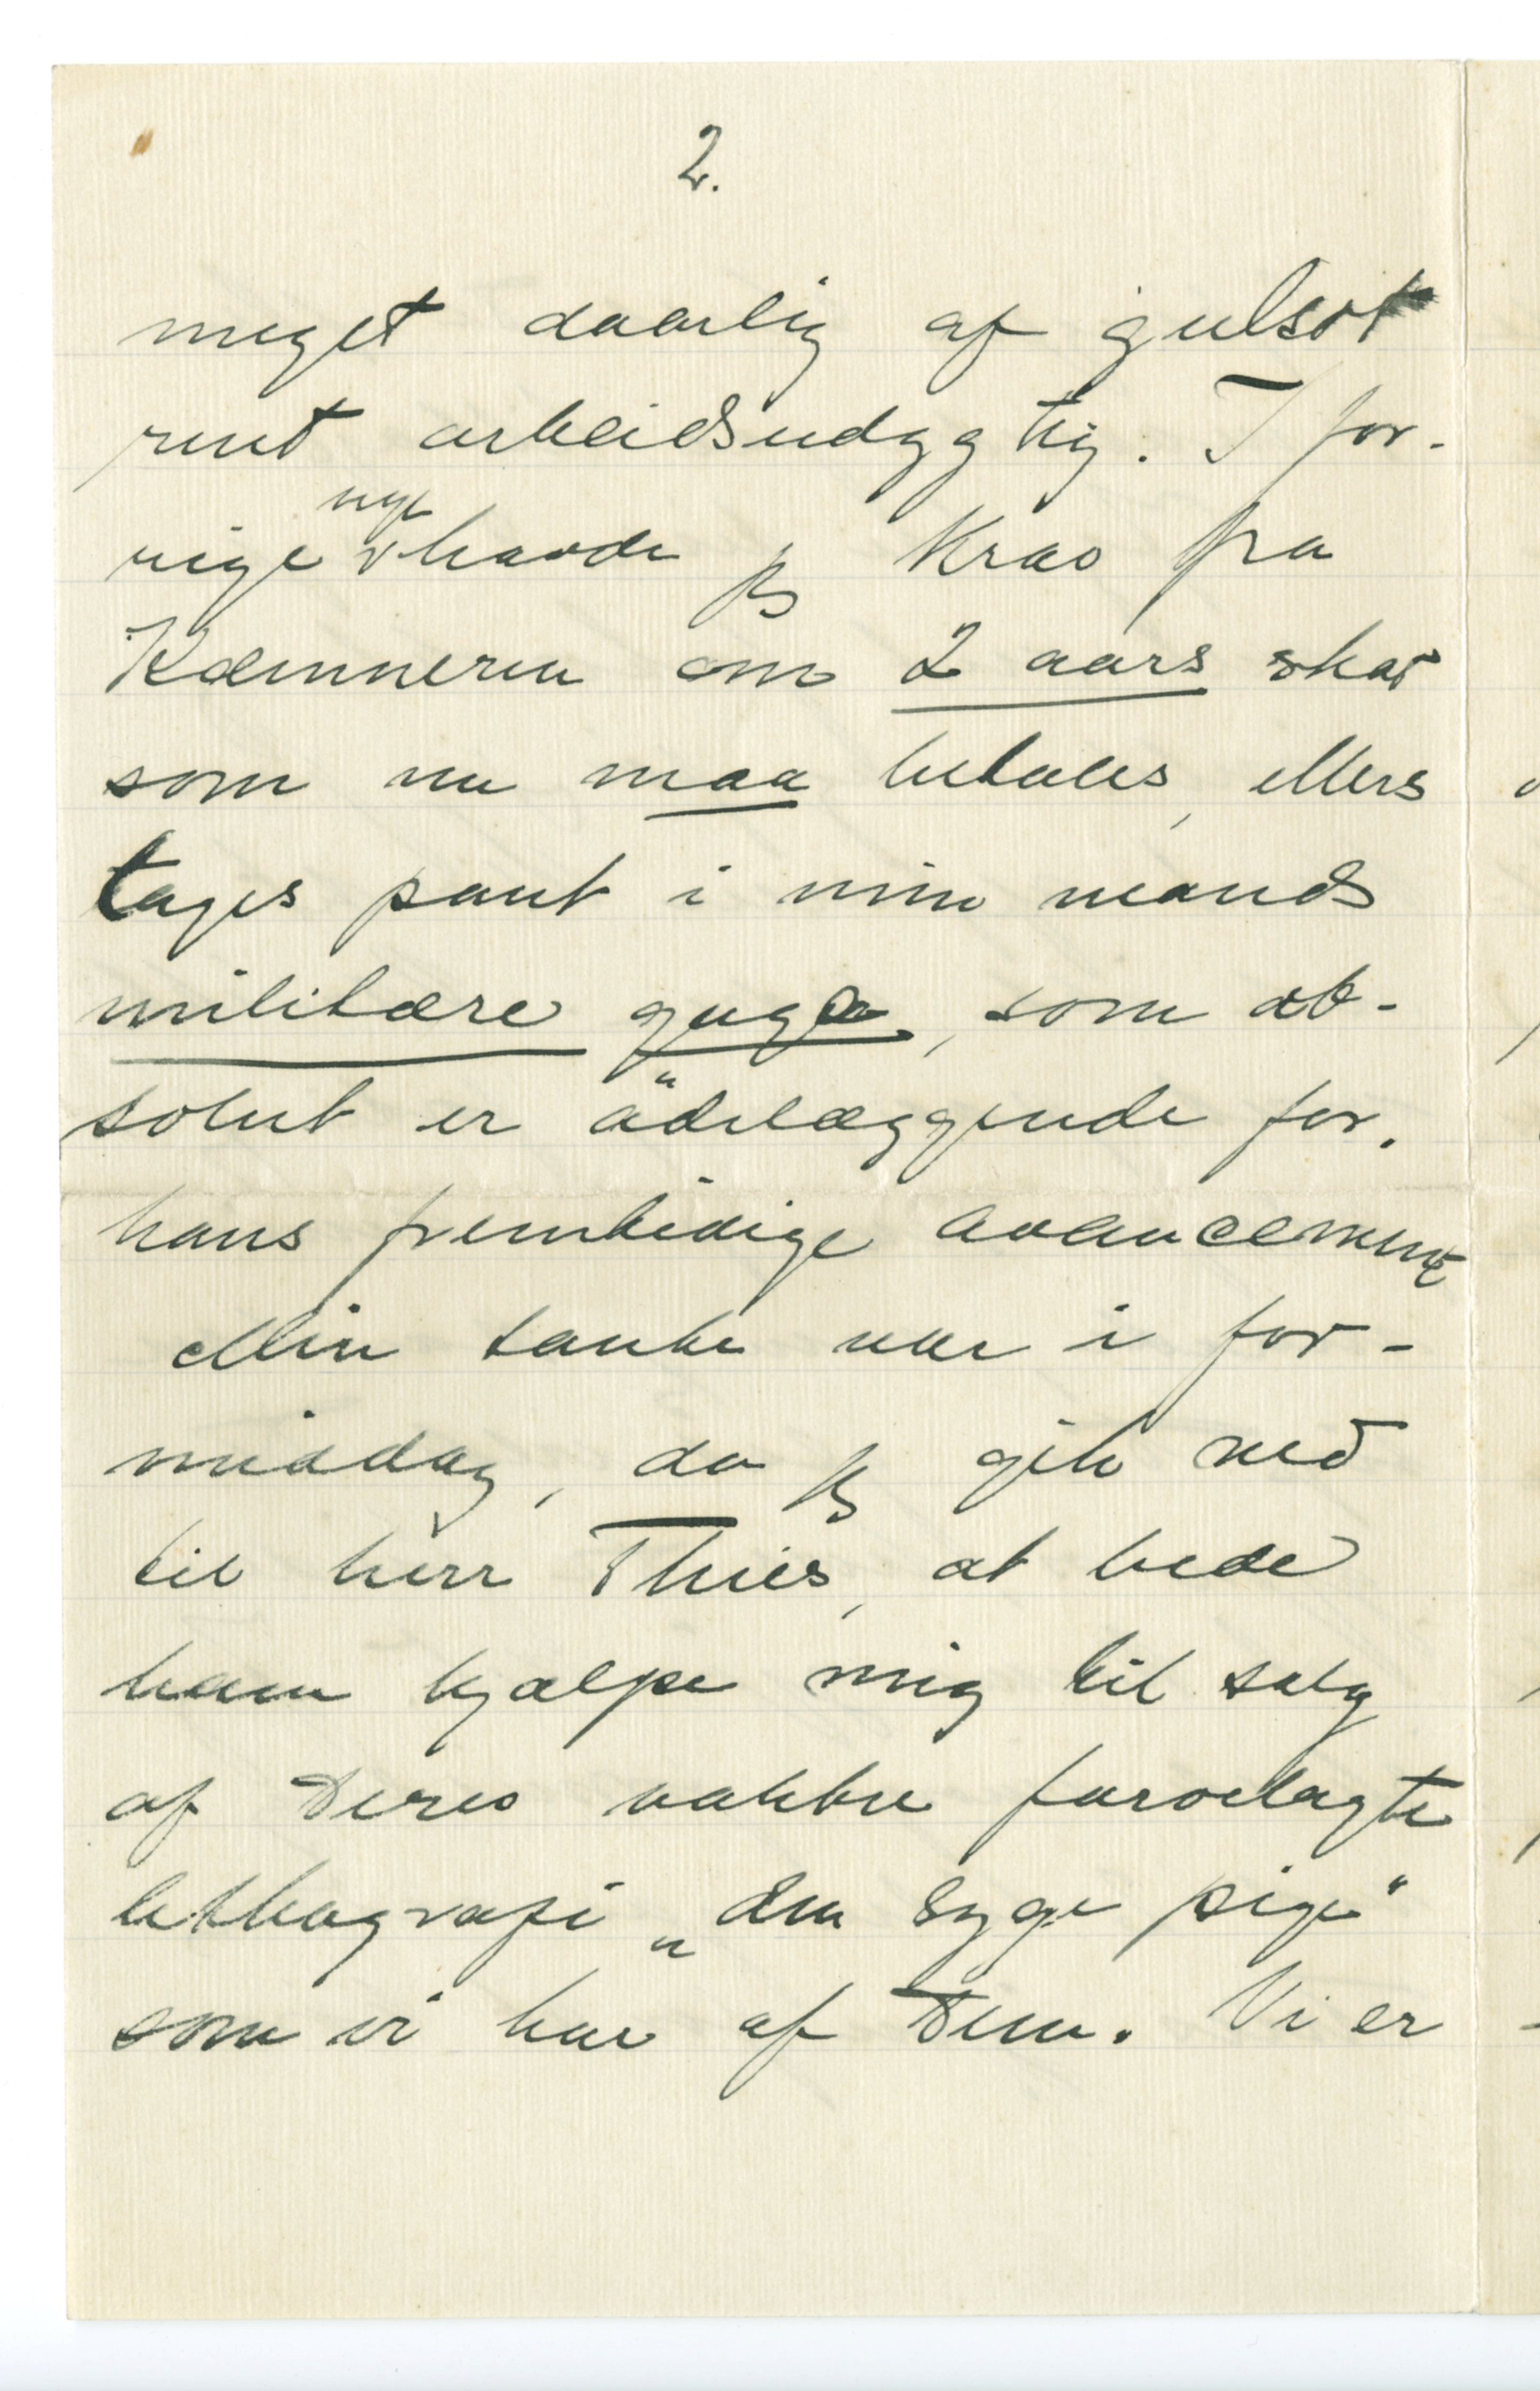 2.
meget daarlig af gulsot
rent arbeidsudygtig. I for-
rige uge havde jeg Krav fra
Kæmneren om 2 aars skat
som nu maa betales, ellers
tages pant i min mands
militære gage, som ab-
solut er ödelæggende for
hans fremtidige avancement
Min tanke var i for-
middag, da jeg gik ned
til herr Thiis, at bede
ham hjælpe mig til salg
af Deres vakkre farvelagte
lithografi „den syge pige"
som vi har af Dem. Vi er